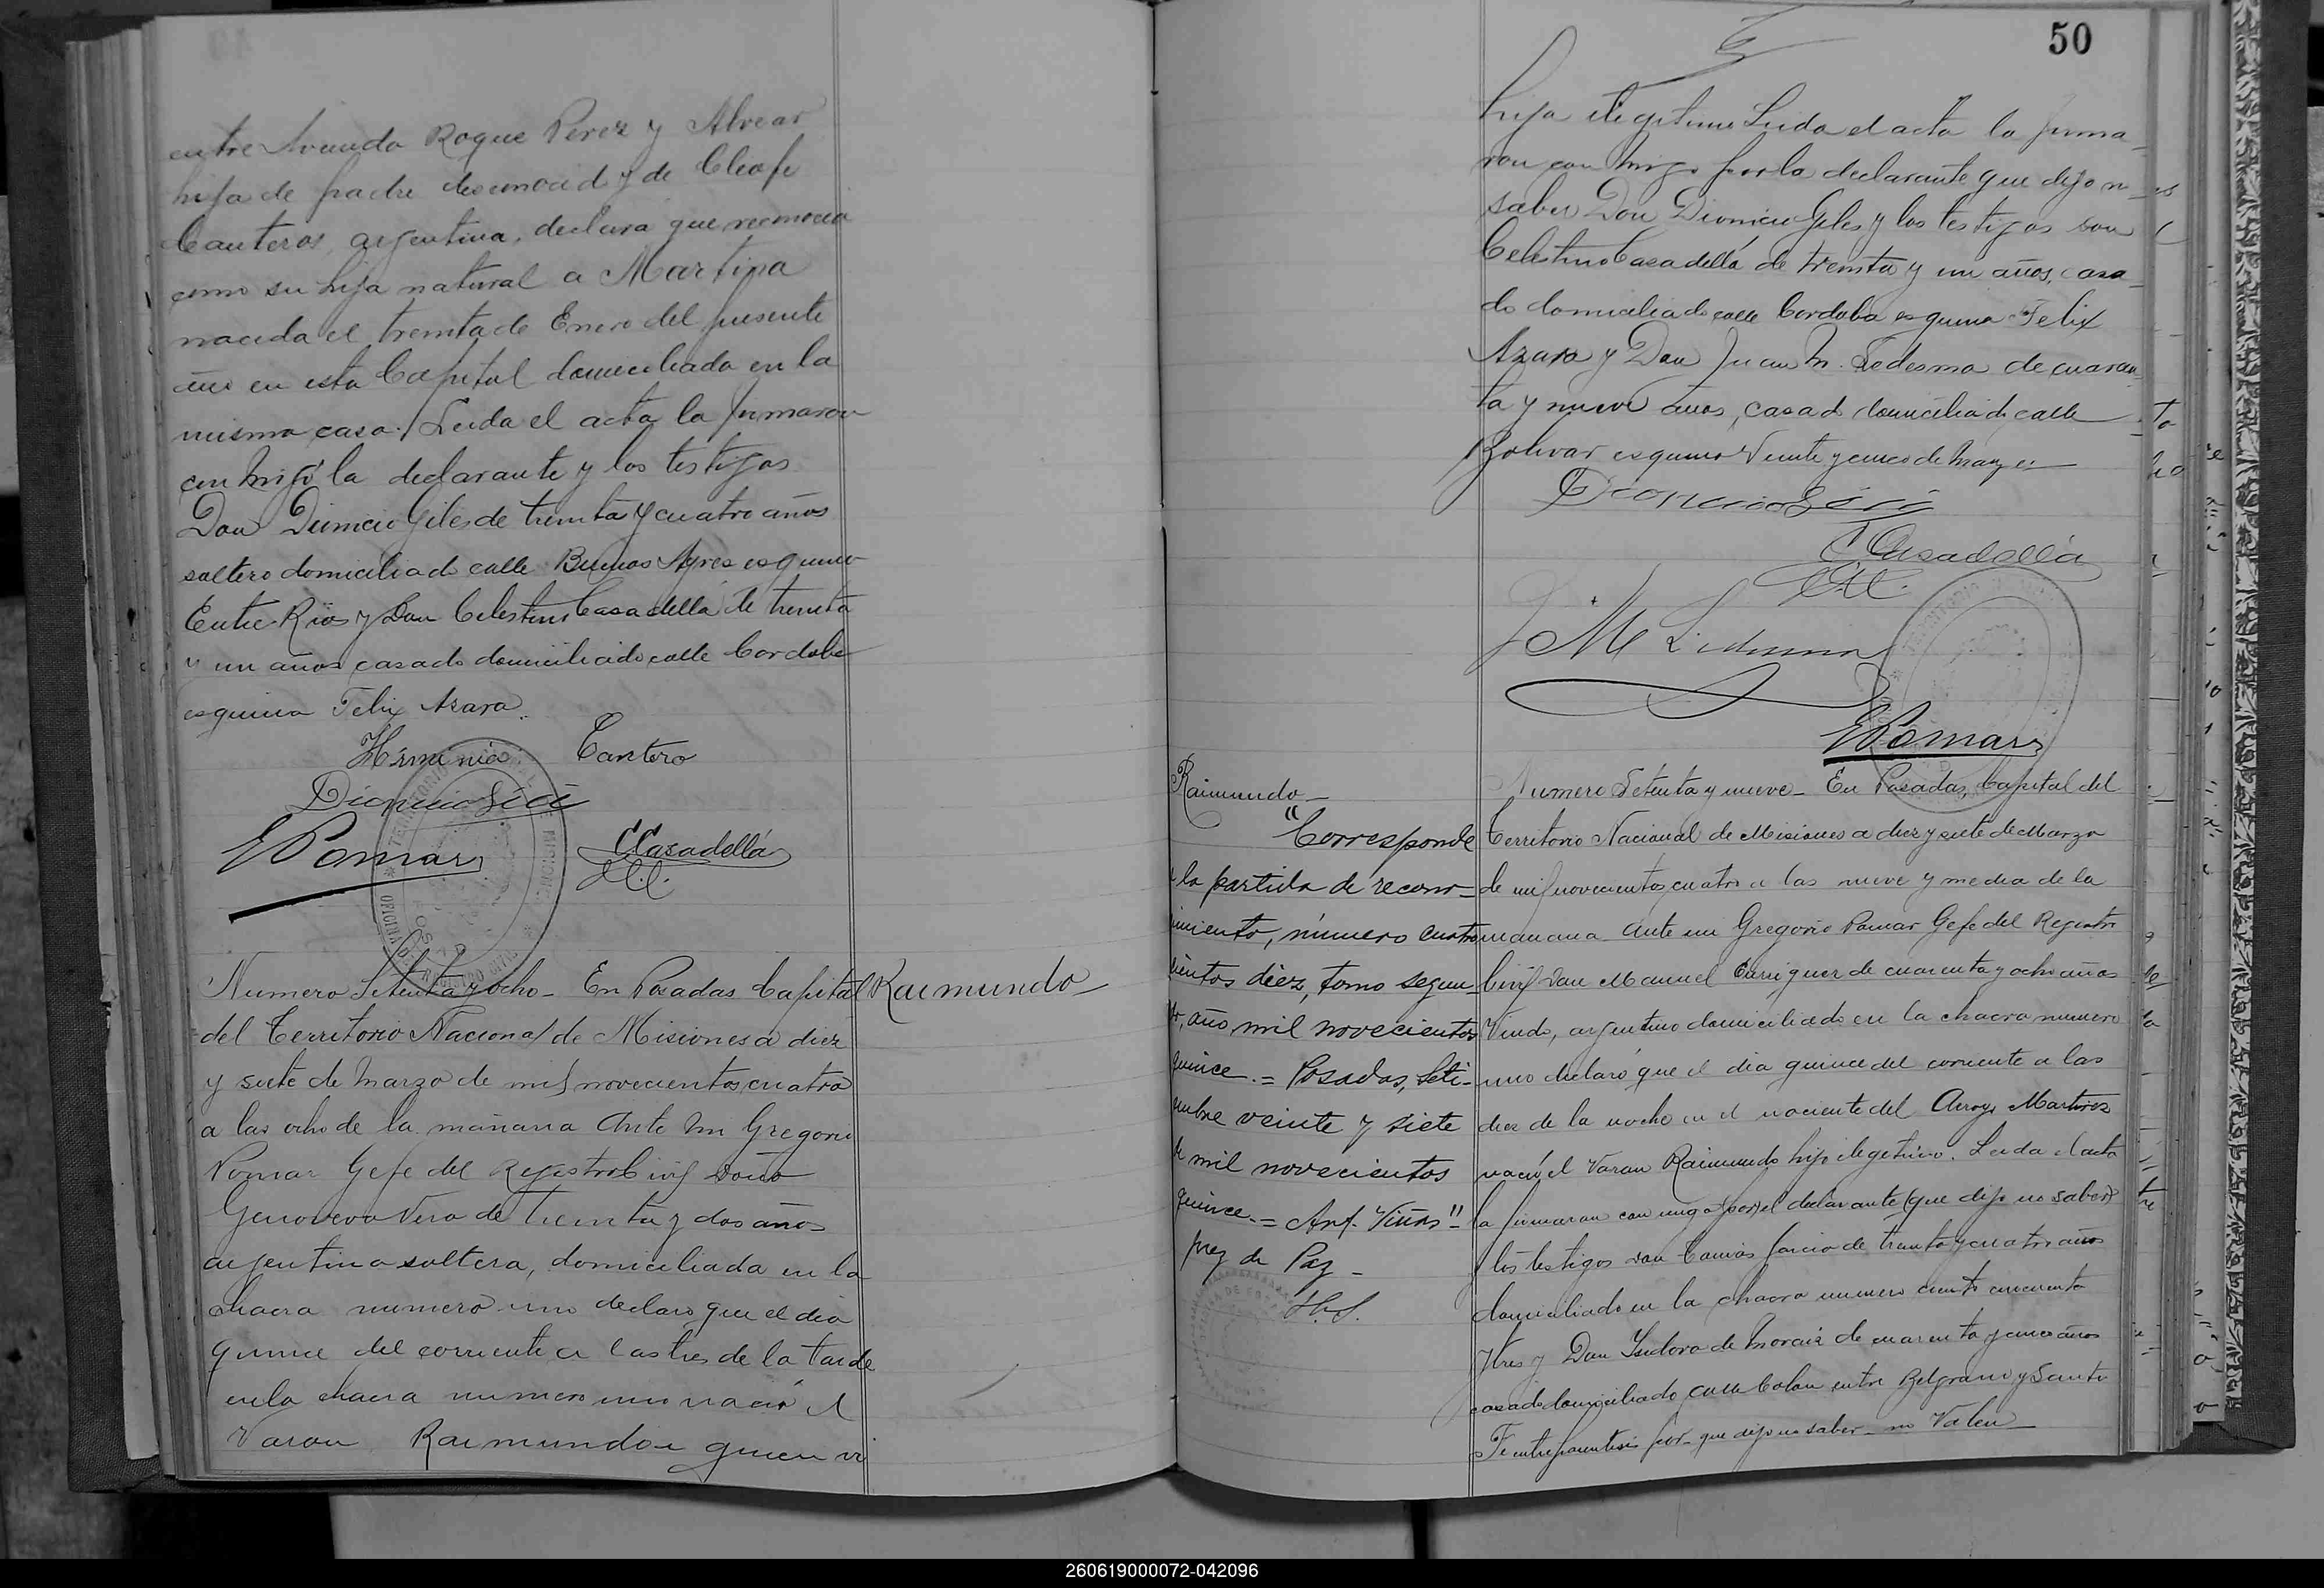 entre Avenida Roque Perez y Alvear
hija de padre desconocido y de Cleofe
Canteros, argentina, declara que reconocia
como su hija natural a Martina
nacida el treinta de Enero del presente
año en esta Capital domiciliada en la
misma casa. Leida el acta la firmaron
conmigo la declarante y los testigos
Don Dionicio Giles de treinta y cuatro años
soltero domiciliado calle Buenos Ayres esquina
Entre Rios y Don Celestino Casadellá de treinta
y un años casado domiciliado calle Cordoba
esquina Felix Azara.
Herminia Cantero
Dionicio
EPomar
CCasadellá
Numero Setenta y ocho - En Posadas Capital
del Territorio Nacional de Misiones a diez
y siete de Marzo de mil novecientos cuatro
a las ocho de la mañana Ante mi Gregorio
Pomar Gefe del Registro Civil Doña
Genoveva Vera de treinta y dos años
argentina soltera, domiciliada en la
chacra numero uno declaró que el dia
quince del corriente a las tres de la tarde
en la chacra numero uno nació el
Varon Raimundo a quien vi
Raimundo
50
hijo ilegitimo Leida el acta la firma-
ron conmigo por la declarante que dijo no
saber Don Dionicio Giles y los testigos Don
Celestino Casadellá de treinta y un años, casa-
do domiciliado calle Cordoba esquina Felix
Azara y Don Juan M. Ledesma de cuaren-
ta y nueve años, casado domiciliado calle
Bolivar esquina Veinte y cinco de Mayo
Dionicio
CCasadellá
JM Ledesma
EPomar
Raimundo
"Corresponde
a la partida de recono-
cimiento, número cuatro
cientos diez, tomo segun-
do, año mil novecientos
quince.= Posadas, Seti-
embre veinte y siete
de mil novecientos
quince.= Anf. Viñas"
Juez de Paz
Numero Setenta y nueve - En Posadas, Capital del
Territorio Nacional de Misiones a diez y siete de Marzo
de mil novecientos cuatro a las nueve y media de la
manana. Ante mi Gregorio Pomar Gefe del Registro
Civil Don Manuel Enriquez de cuarenta y ocho años
Viudo, argentino domiciliado en la chacra numero
uno declaró que el dia quince del corriente a las
diez de la noche en el naciente del Arroyo Martires
nació el Varon Raimundo hijo ilegitimo. Leida el acta
la firmaron conmigo (por) el declarante (que dijo no saber)
y los testigos Don Tomás Garcia de treinta y cuatro años
domiciliado en la chacra numero ciento cincuenta
y tres y Don Isidoro de Morais de cuarenta y cinco años
casado domiciliado calle Colon entre Belgrano y Santa
Fe entreparentesis por - que dijo no saber - no Valen
260619000072-042096